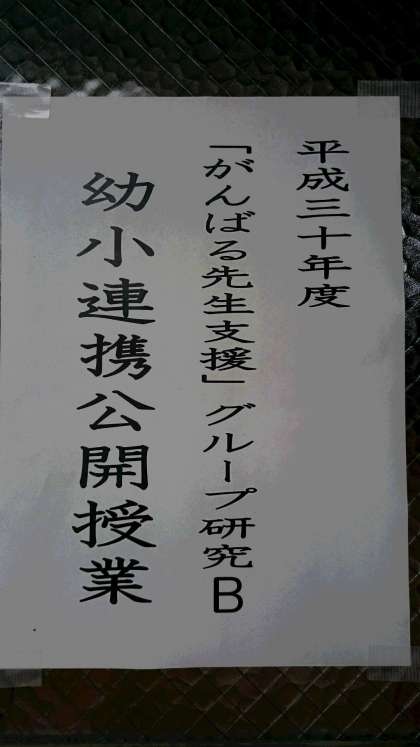 平成三十年度
「がんばる先生支援」グループ研究B
幼小連携公開授業